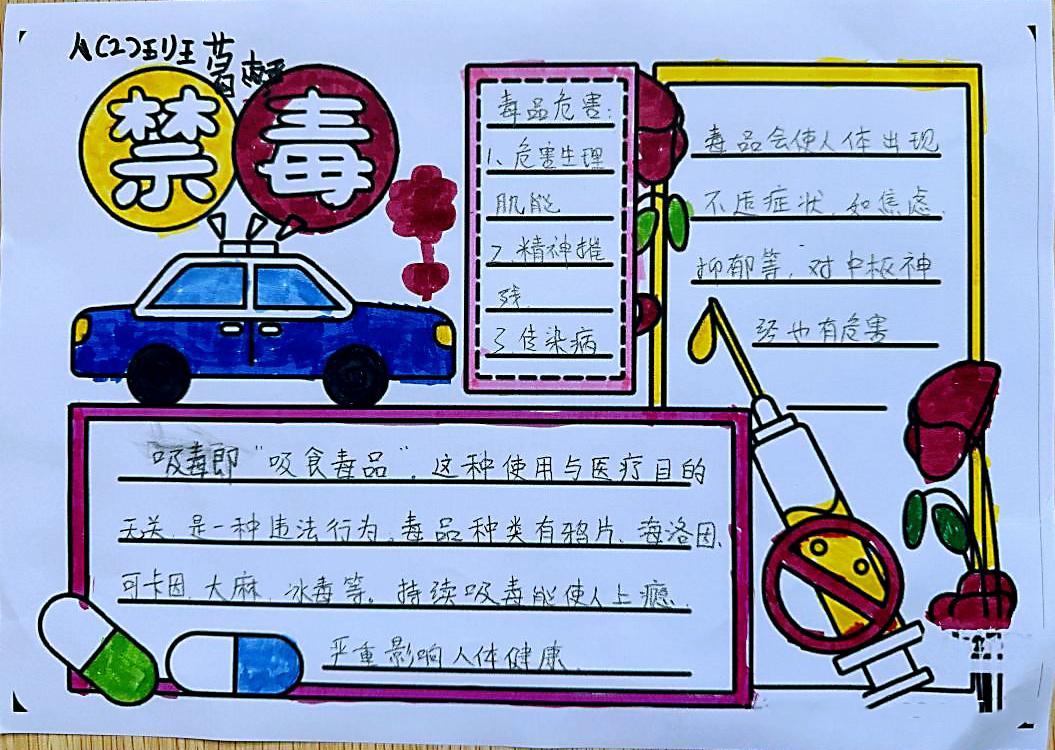 八(2)班
禁毒
毒品危害:
1、危害生理
肌能
2.精神摧
残.
3.传染病
毒品会使人体出现
不适症状,如焦虑.
抑郁等,对中枢神
经也有危害
吸毒即“吸食毒品”,这种使用与医疗目的
无关,是一种违法行为。毒品种类有鸦片、海洛因、
可卡因、大麻、冰毒等。持续吸毒能使人上瘾.
严重影响人体健康.